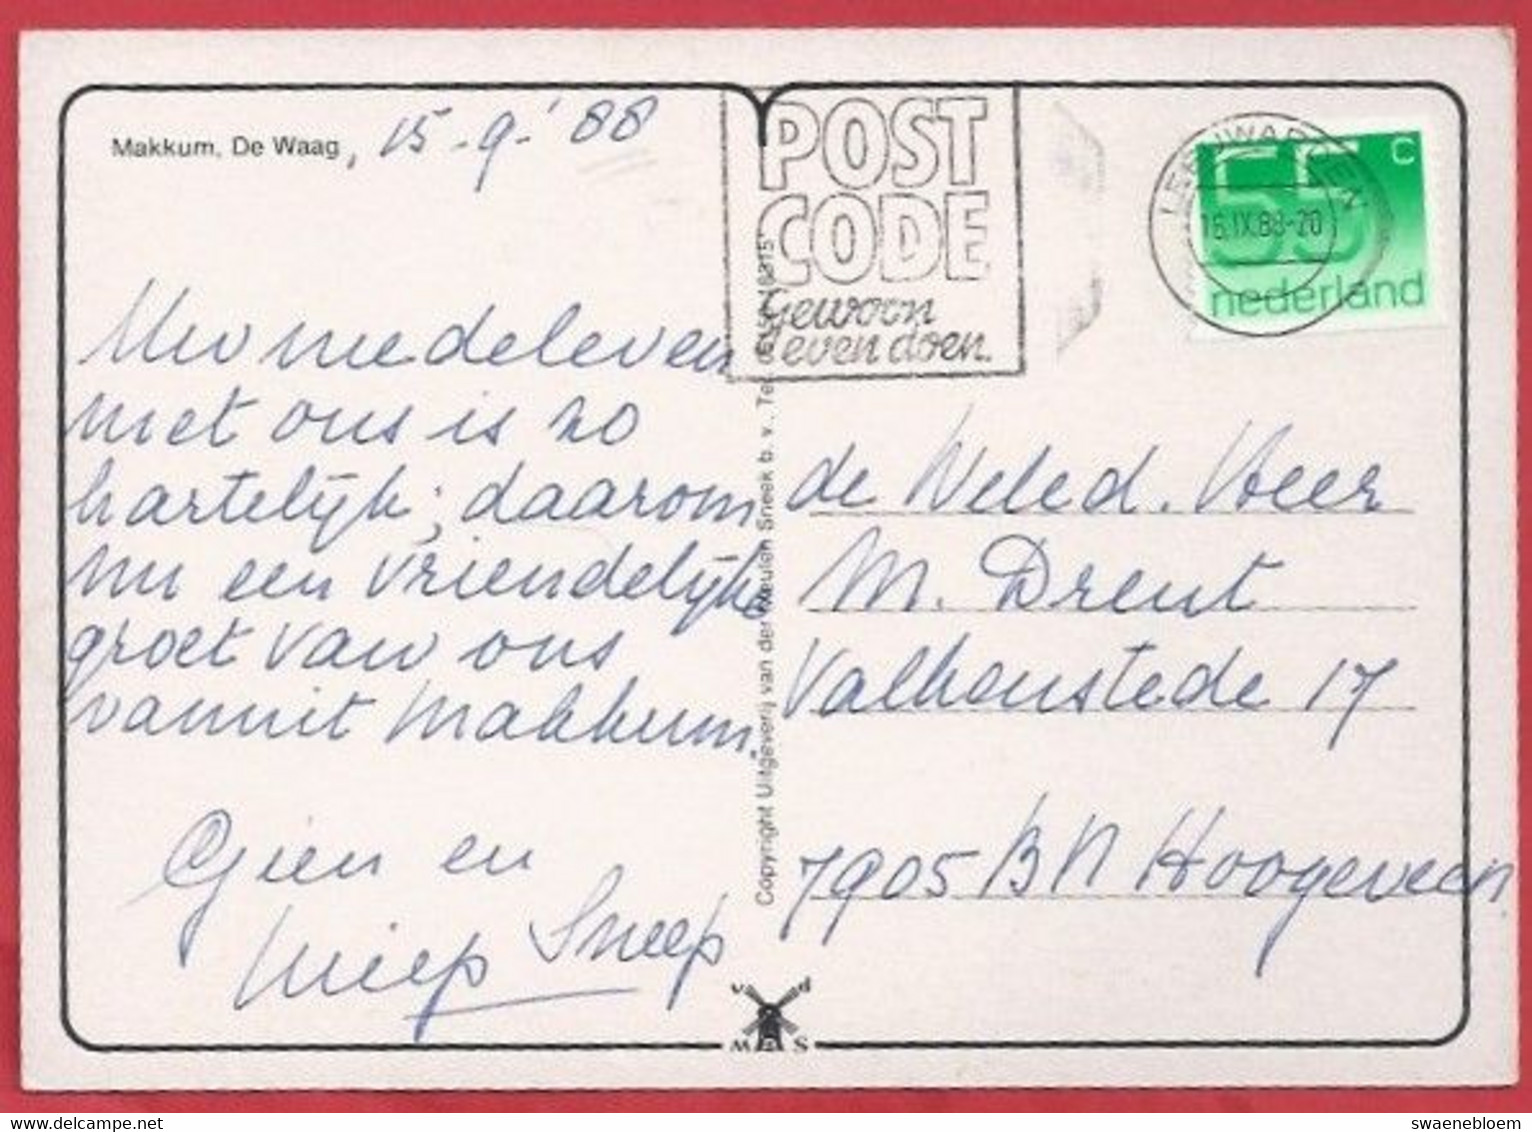 Makkum, De Waag, 15-9-'88
Uw medeleven
met ons is zo
hartelijk; daarom
nu een vriendelijke
groet van ons
vanuit Makkum.
Gien en
Miep Sneep
POST
CODE
Gewoon
even doen.
LEEUWARDEN
16.IX.88-20
55 C
nederland
de Weled. Heer
M. Drent
Valkenstede 17
7905 BN Hoogeveen
Copyright Uitgeverij van der Meulen Sneek b.v. Tel.
v d
M S
swaenebloem